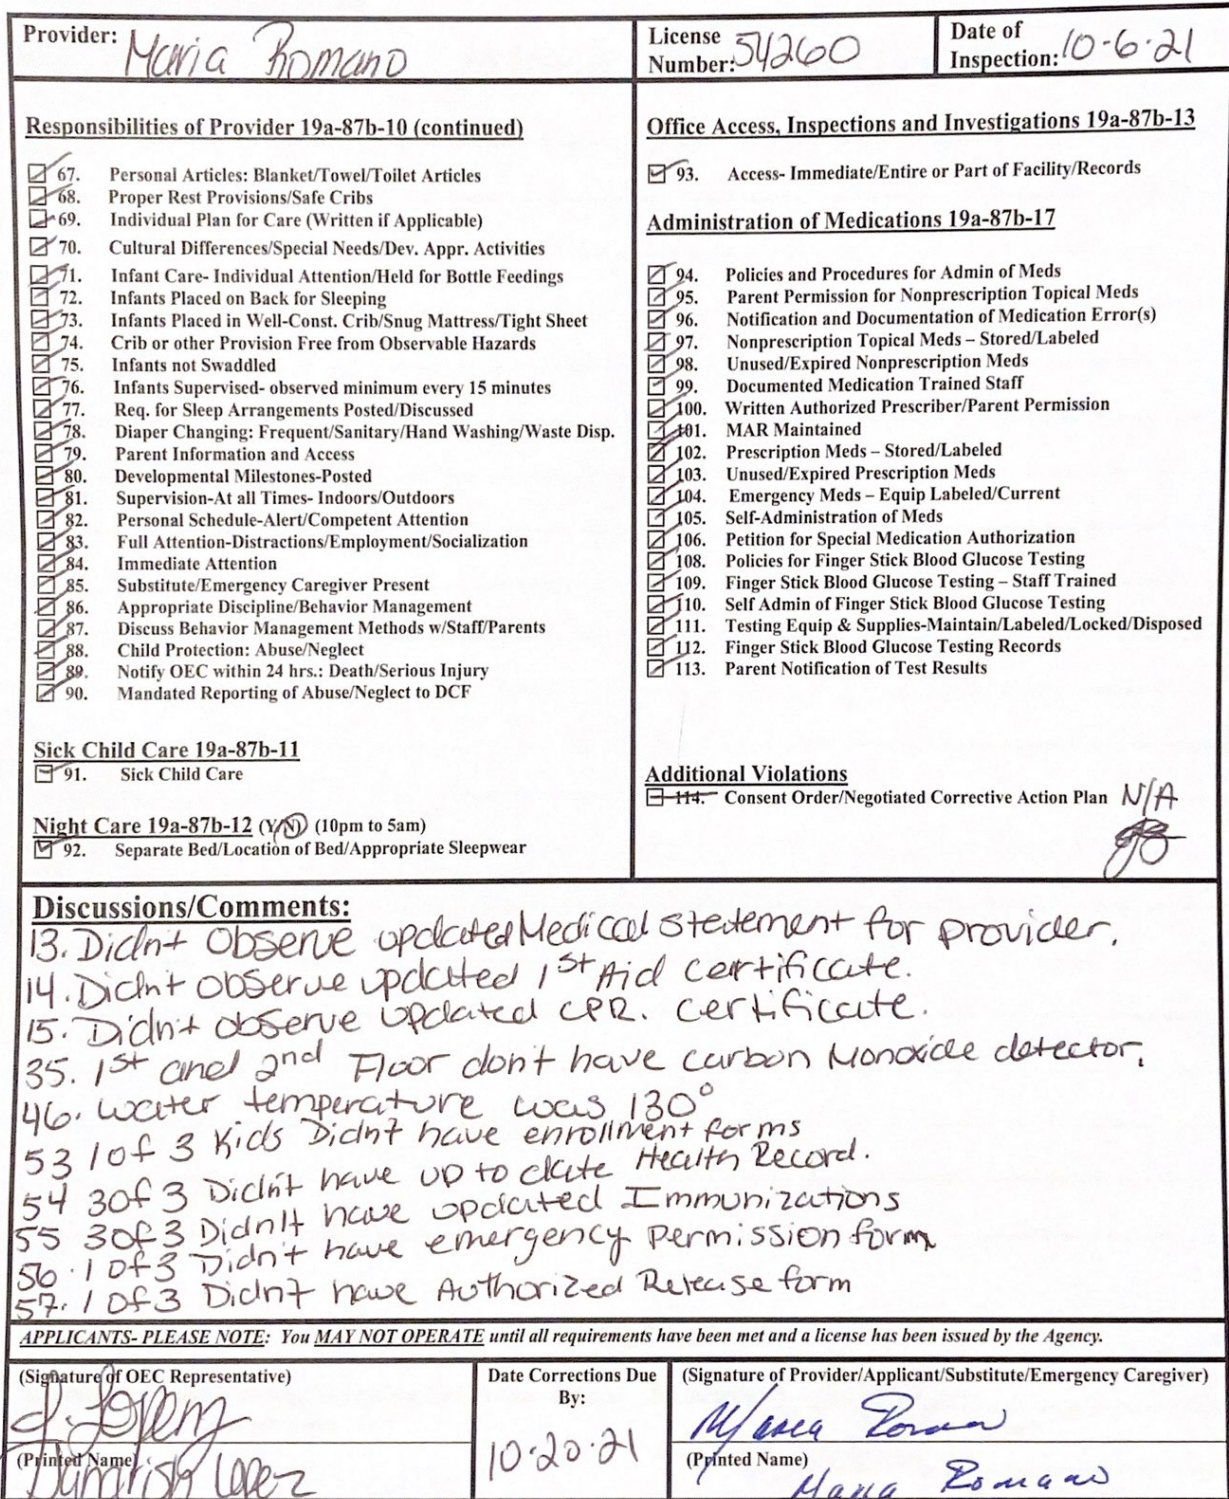 Provider: Maria Romano
License Number: 54260
Date of Inspection: 10-6-21
Responsibilities of Provider 19a-87b-10 (continued)
67. Personal Articles: Blanket/Towel/Toilet Articles
68. Proper Rest Provisions/Safe Cribs
69. Individual Plan for Care (Written if Applicable)
70. Cultural Differences/Special Needs/Dev. Appr. Activities
71. Infant Care- Individual Attention/Held for Bottle Feedings
72. Infants Placed on Back for Sleeping
73. Infants Placed in Well-Const. Crib/Snug Mattress/Tight Sheet
74. Crib or other Provision Free from Observable Hazards
75. Infants not Swaddled
76. Infants Supervised- observed minimum every 15 minutes
77. Req. for Sleep Arrangements Posted/Discussed
78. Diaper Changing: Frequent/Sanitary/Hand Washing/Waste Disp.
79. Parent Information and Access
80. Developmental Milestones-Posted
81. Supervision-At all Times- Indoors/Outdoors
82. Personal Schedule-Alert/Competent Attention
83. Full Attention-Distractions/Employment/Socialization
84. Immediate Attention
85. Substitute/Emergency Caregiver Present
86. Appropriate Discipline/Behavior Management
87. Discuss Behavior Management Methods w/Staff/Parents
88. Child Protection: Abuse/Neglect
89. Notify OEC within 24 hrs.: Death/Serious Injury
90. Mandated Reporting of Abuse/Neglect to DCF
Sick Child Care 19a-87b-11
91. Sick Child Care
Night Care 19a-87b-12 (Y/N) (10pm to 5am)
92. Separate Bed/Location of Bed/Appropriate Sleepwear
Office Access, Inspections and Investigations 19a-87b-13
93. Access- Immediate/Entire or Part of Facility/Records
Administration of Medications 19a-87b-17
94. Policies and Procedures for Admin of Meds
95. Parent Permission for Nonprescription Topical Meds
96. Notification and Documentation of Medication Error(s)
97. Nonprescription Topical Meds – Stored/Labeled
98. Unused/Expired Nonprescription Meds
99. Documented Medication Trained Staff
100. Written Authorized Prescriber/Parent Permission
101. MAR Maintained
102. Prescription Meds – Stored/Labeled
103. Unused/Expired Prescription Meds
104. Emergency Meds – Equip Labeled/Current
105. Self-Administration of Meds
106. Petition for Special Medication Authorization
108. Policies for Finger Stick Blood Glucose Testing
109. Finger Stick Blood Glucose Testing – Staff Trained
110. Self Admin of Finger Stick Blood Glucose Testing
111. Testing Equip & Supplies-Maintain/Labeled/Locked/Disposed
112. Finger Stick Blood Glucose Testing Records
113. Parent Notification of Test Results
Additional Violations
114. Consent Order/Negotiated Corrective Action Plan N/A
Discussions/Comments:
13. Didn't Observe updated Medical statement for provider.
14. Didn't observe updated 1st Aid certificate.
15. Didn't observe updated CPR. certificate.
35. 1st and 2nd Floor don't have carbon Monoxide detector.
46. water temperature was 130°
53 1 of 3 Kids Didn't have enrollment forms
54 3 of 3 Didn't have up to date Health Record.
55 3 of 3 Didn't have updated Immunizations
56. 1 of 3 Didn't have emergency permission form
57. 1 of 3 Didn't have Authorized Release form
APPLICANTS- PLEASE NOTE: You MAY NOT OPERATE until all requirements have been met and a license has been issued by the Agency.
(Signature of OEC Representative)
(Printed Name)
Lopez
Date Corrections Due
By:
10-20-21
(Signature of Provider/Applicant/Substitute/Emergency Caregiver)
Maria Romano
(Printed Name)
Maria Romano